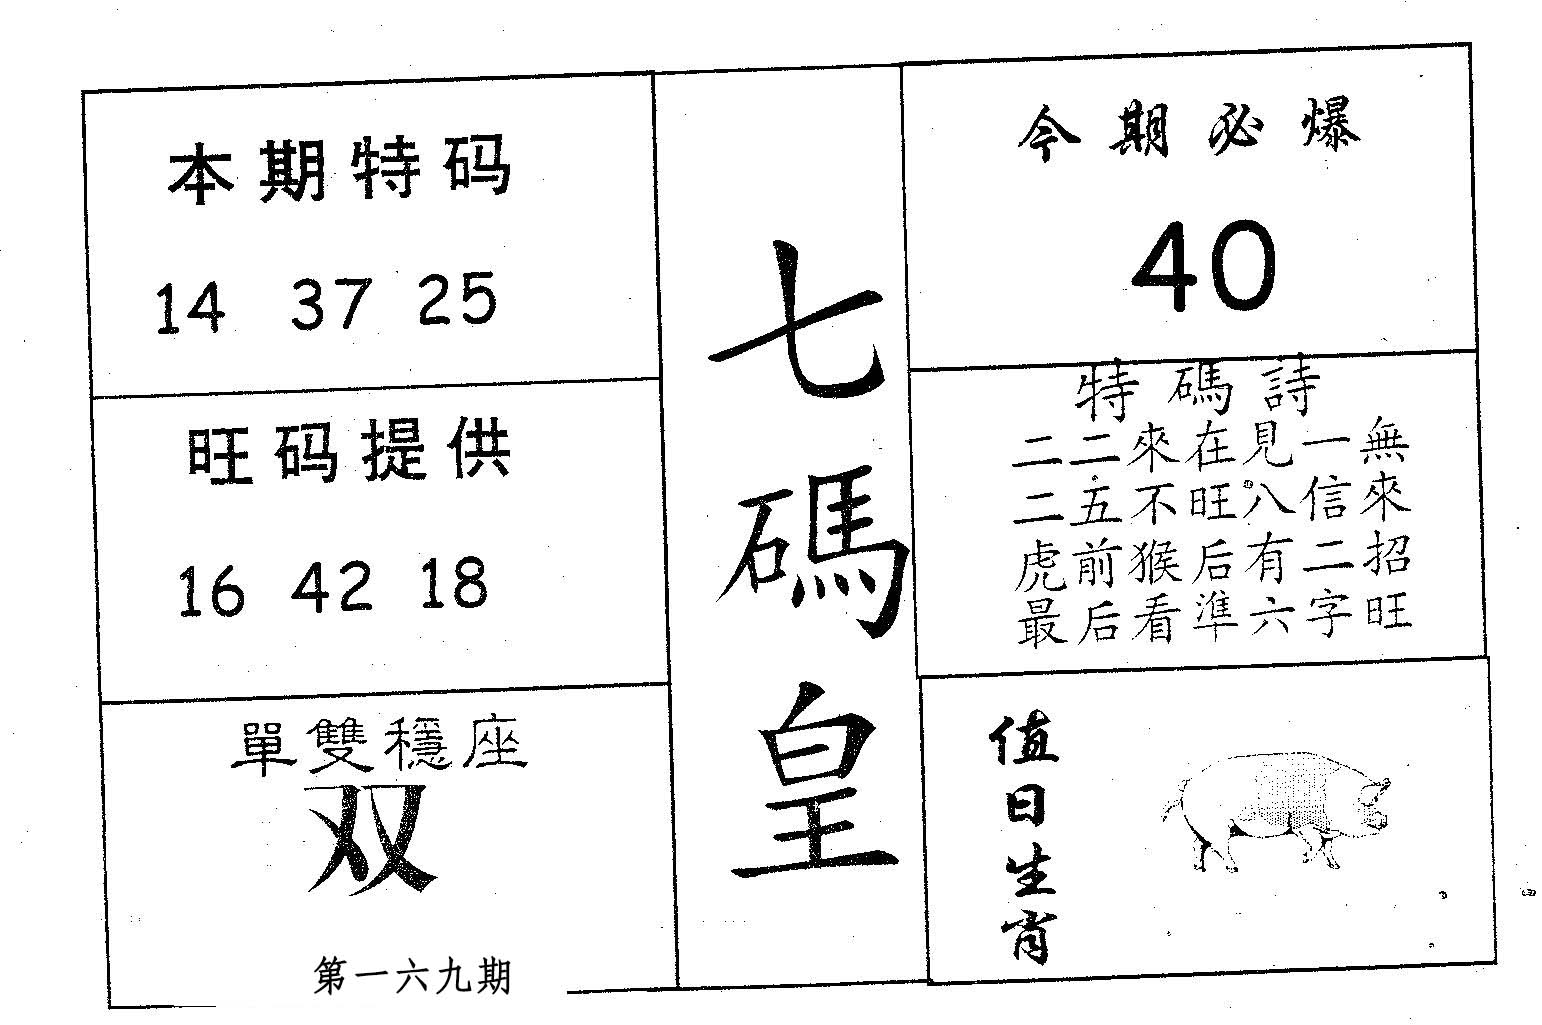 本期特码
14 37 25
旺码提供
16 42 18
單雙穩座
双
第一六九期
七碼皇
今期必爆
40
特碼詩
二二來在見一無
二五不旺八信來
虎前猴后有二招
最后看準六字旺
值日生肖